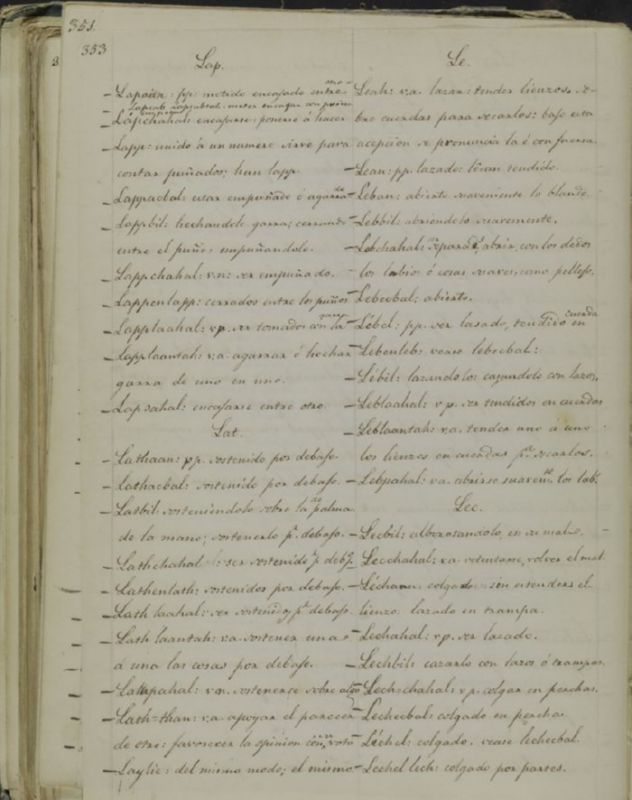 351.
353
Lap.
– Lapaan: pp: metido encajado entre otro
– Lapchahal: encajarse: ponerse á hacer
Lapp: unido á un numero sirve para
contar puñados; hun lapp.
– Lappacbal: estar empuñado ó agarrado
– Lappbil: hechandole garra; cerrando
entre el puño: empuñandolo.
– Lappchahal: v.n: ser empuñado.
– Lappenlapp: cerrados entre los puños
– Lapplaahal: v.p. ser tomados con la garra
– Lapplaantah: v.a agarrar ó hechar
garra de uno en uno.
– Lapsahal: encajarse entre otro.
Lat.
– Lathaan: pp. sostenido por debajo.
– Lathacbal: sostenido por debajo.
– Latbil: sosteniendolo sobre la palma
de la mano; sostenerlo pr. debajo.
– Lathchahal: ser sostenido p. debajo
– Lathenlath: sostenidos por debajo.
– Lath laahal: ser sostenido pr. debajo.
– Lath laantah: v.a sostener una
á una las cosas por debajo.
– Lathpahal: v.n. sostenerse sobre algo
– Lath=than: v.a. apoyar el parecer
de otro: favorecer la opinion con voto
– Laylie: del mismo modo; el mismo
Le.
Leah: v.a. lazar: tender lienzos so-
bre cuerdas para secarlos: bajo esta
acepcion se pronuncia la é con fuerza
– Lean: pp. lazado: tendido.
– Leban: abierto suavemente lo blando
– Lebbil: abriendolo suavemente.
– Lebchahal: separar, abrir, con los dedos
los labios ó cosas suaves, como pellejo.
– Lebecbal: abierto.
– Lébel: pp. ser lasado, tendido en cuerda
– Lebenleb: vease lebecbal:
– Lébil: lazandolo: cazandolo con lazos.
– Leblaahal: v.p. ser tendidos en cuerdas
– Leblaantah: v.a. tender uno a uno
los lienzos en cuerdas pa. secarlos.
– Lebpahal: v.a. abrirse suavemte. los lab.
Lec.
– Lecbil:
– Lecchahal: v.a volver el
– Léchaan: colgado sin estenderse el
lienzo: lazado en trampa.
– Lechahal: v.p. ser lazado.
– Lechbil: cazarlo con lazos ó trampas.
– Lech=chahal: v.p. colgar en perchas.
– Lechecbal: colgado en percha
– Léchel: colgado. vease lechecbal.
– Lechellech: colgado por partes.